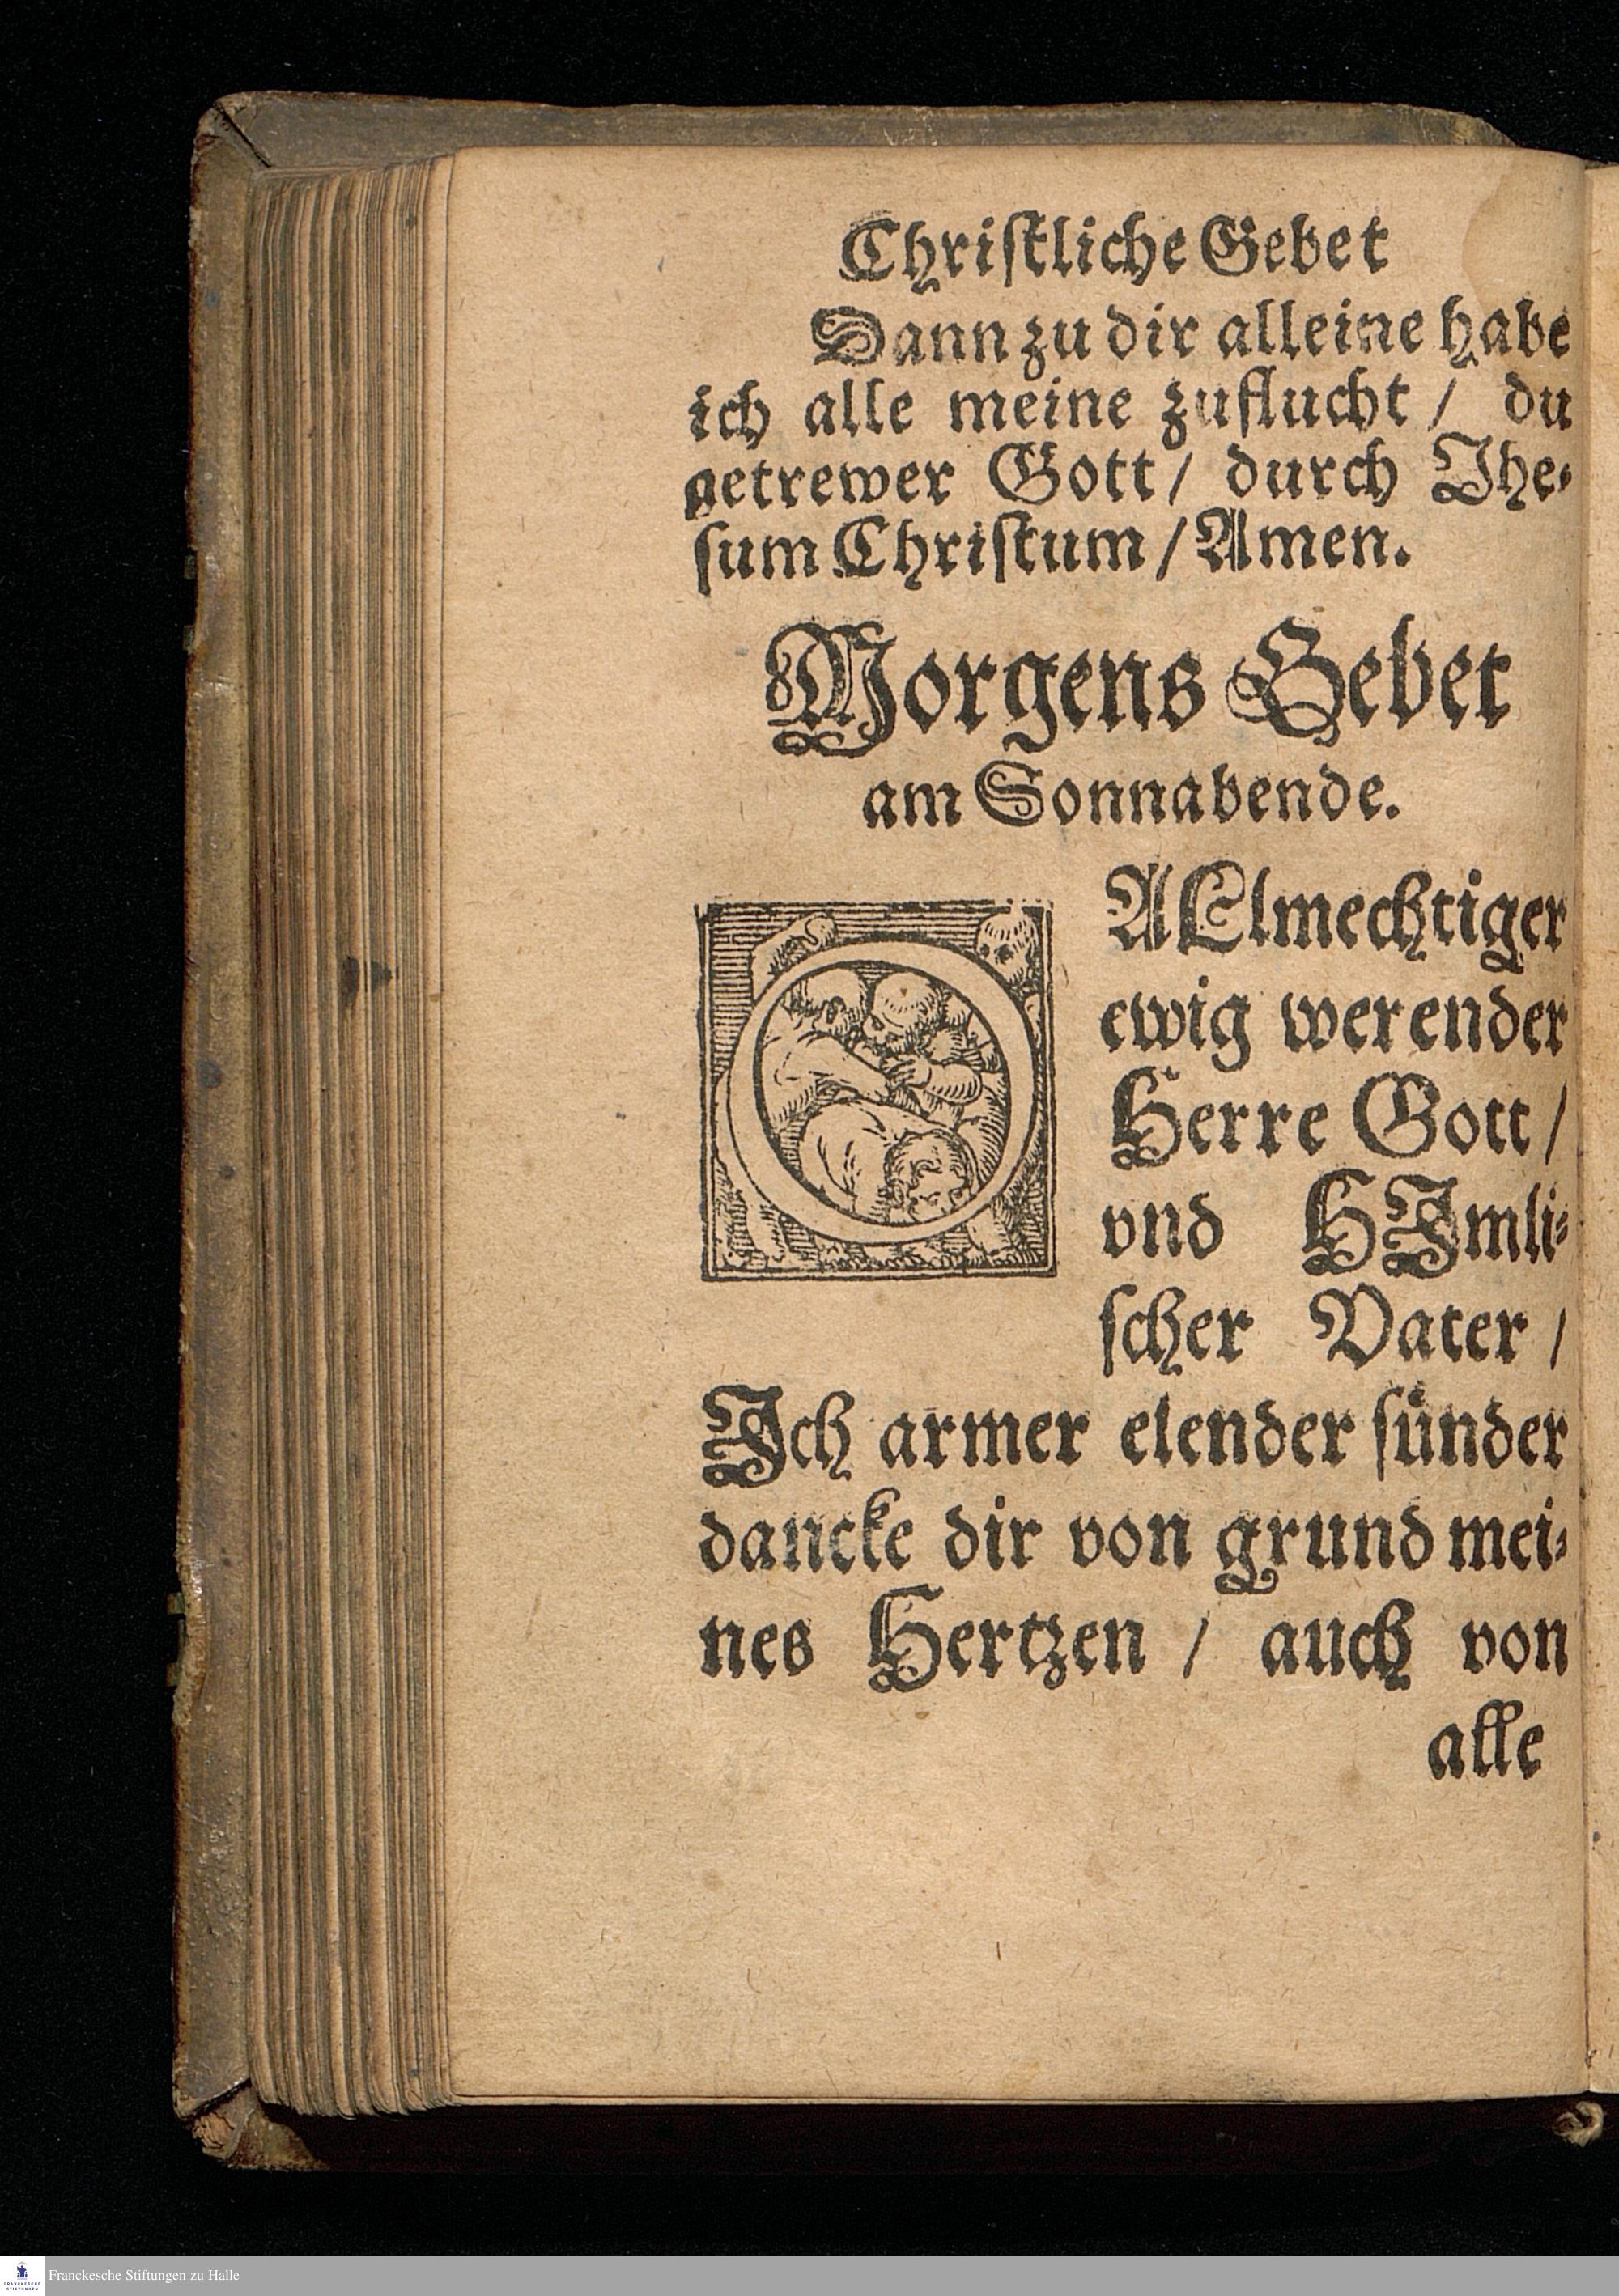 Christliche Gebet
Dann zu dir alleine habe
ich alle meine zuflucht / du
getrewer Gott / durch Jhe-
sum Christum / Amen.
Morgens Gebet
am Sonnabende.
O ALlmechtiger
ewig werender
Herre Gott /
vnd HJmli-
scher Vater /
Jch armer elender sünder
dancke dir von grund mei-
nes Hertzen / auch von
alle
FRANCKESCHE
STIFTUNGEN
Franckesche Stiftungen zu Halle